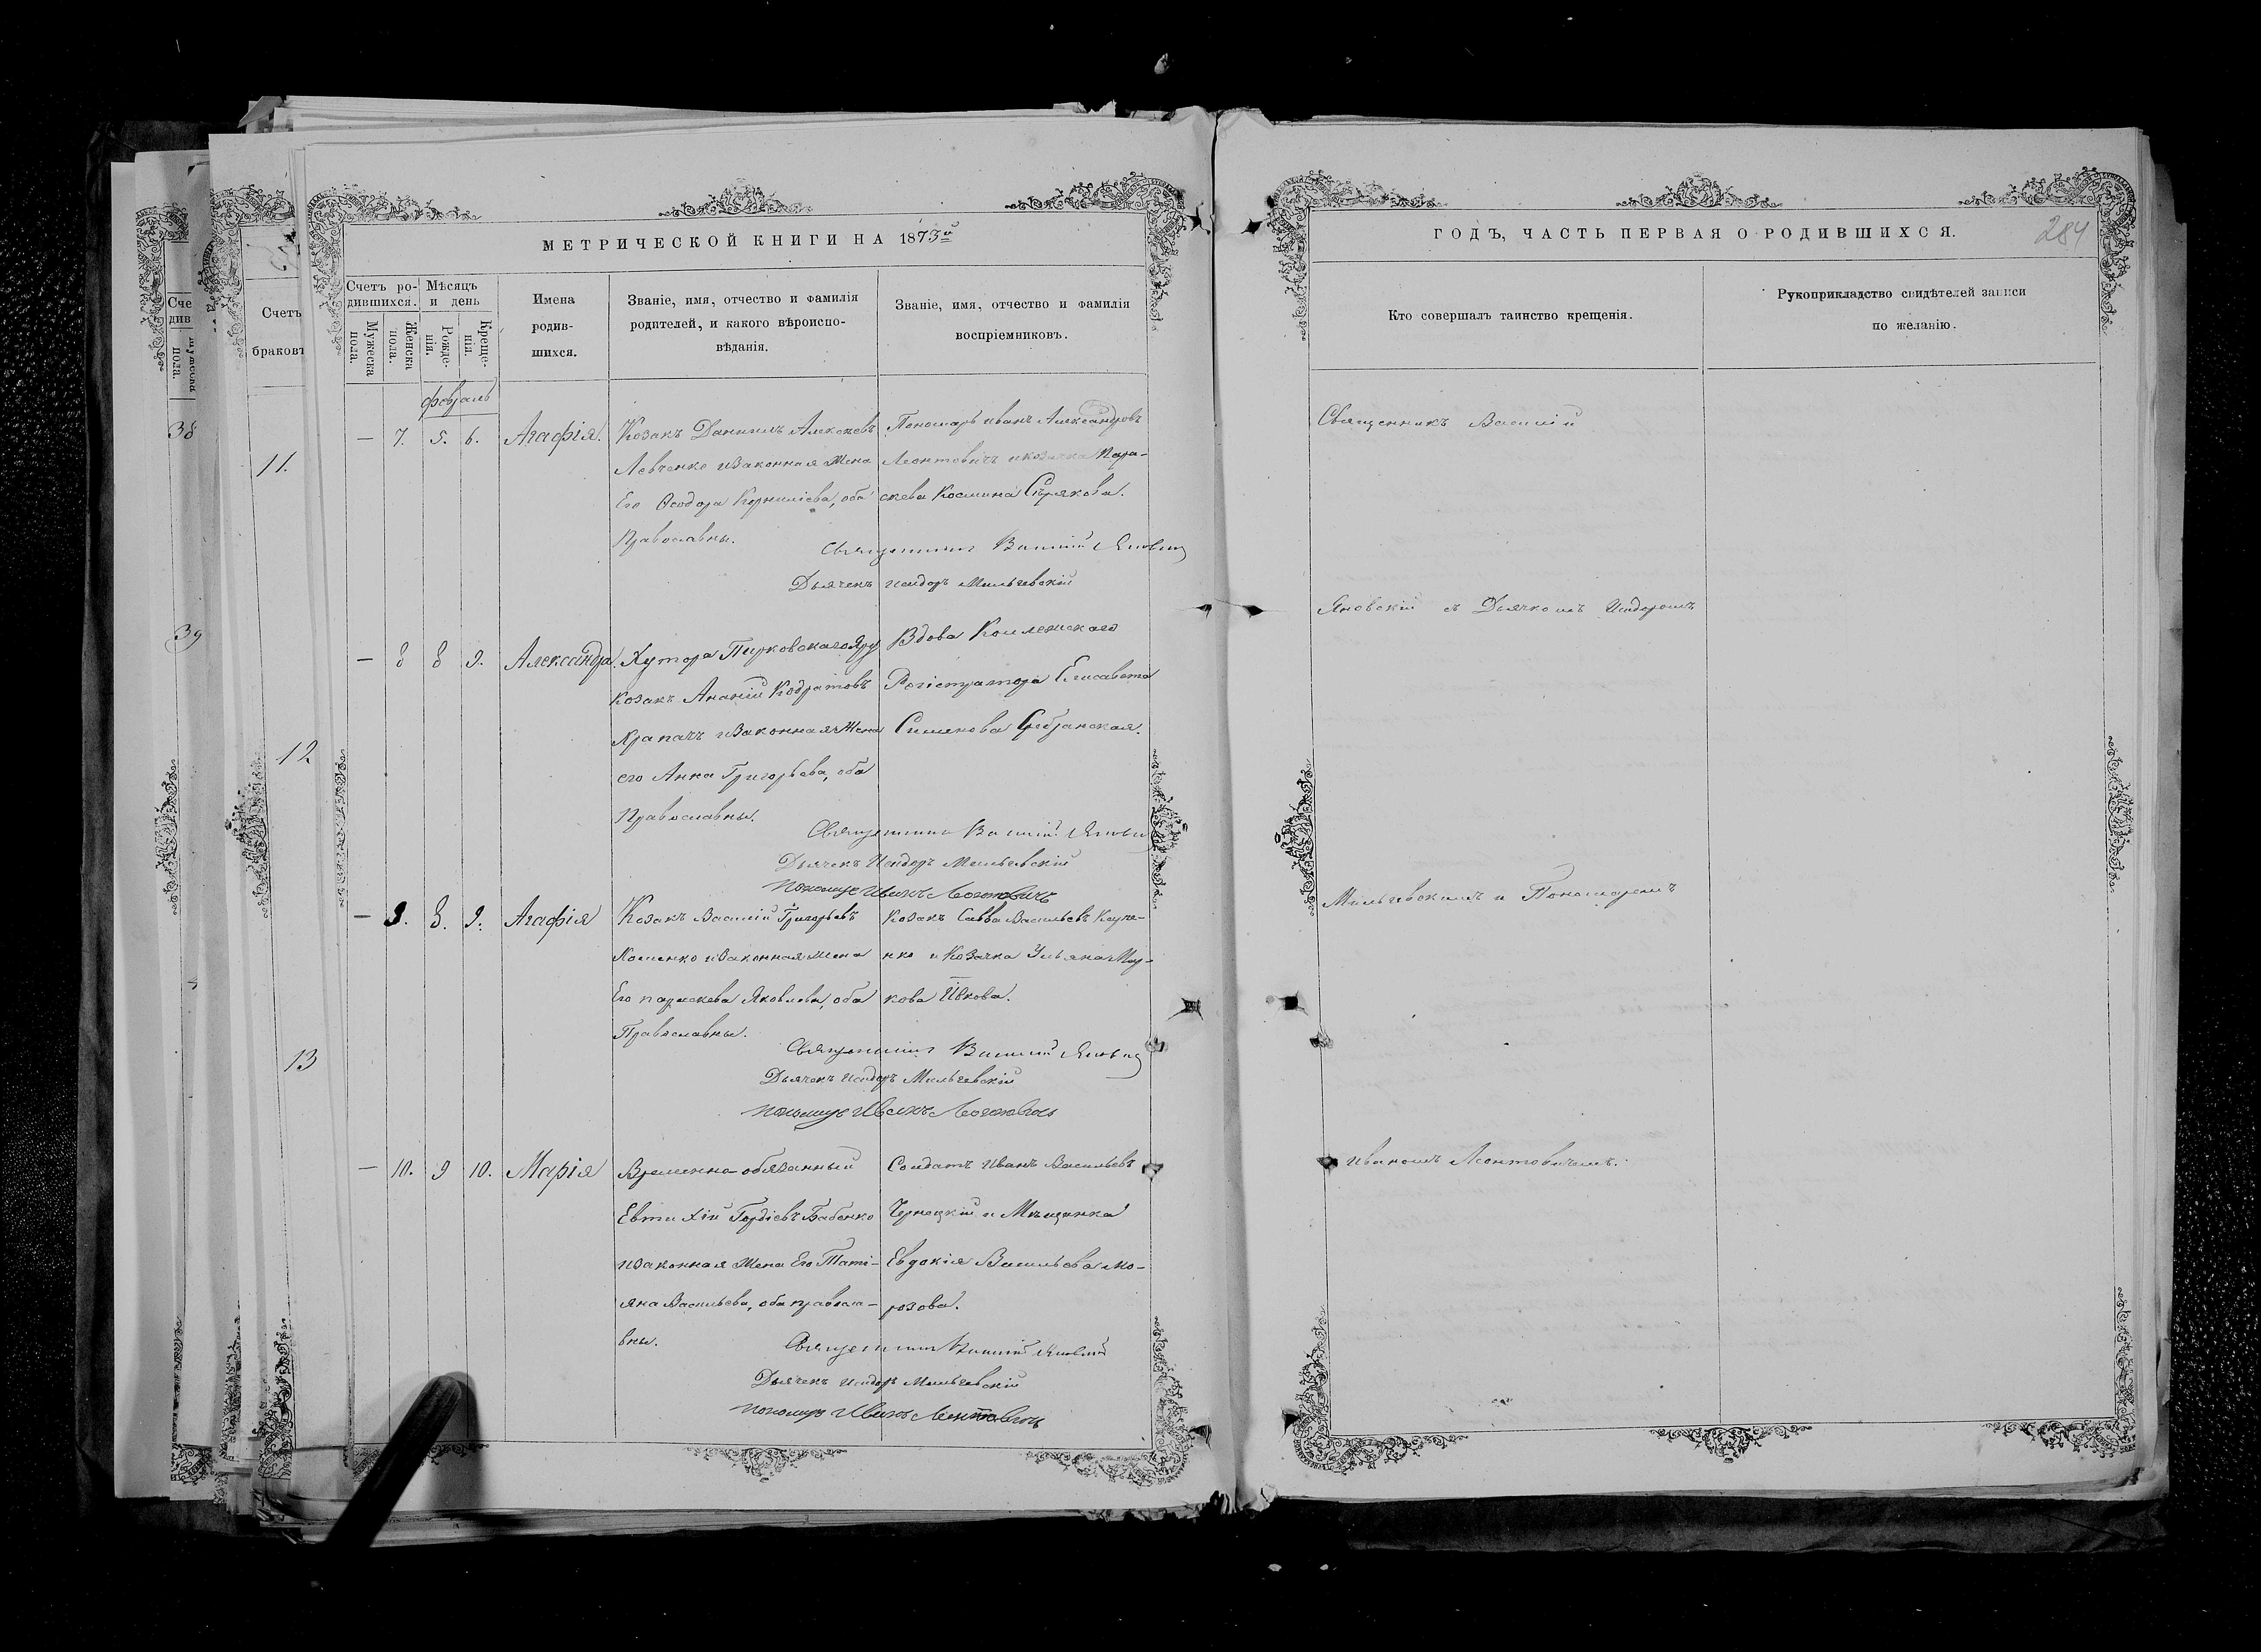 МЕТРИЧЕСКОЙ КНИГИ НА 1873й
Счетъ родившихся.
Мужеска пола.
Женска пола.
Мѣсяцъ и день
Рожденія.
Крещенія.
Имена родившихся.
Званіе, имя, отчество и фамилія
родителей, и какого вѣроиспо-
вѣданія.
Званіе, имя, отчество и фамилія
воспріемниковъ.
Февраль
— 7. 5. 6. Агафія.
Козакъ Даниилъ Алексѣевъ
Левченко и законная жена
Его Ѳеодора Корниліева, оба
Православны.
Пономарь Иванъ Александровъ
Леонтовичъ и козачка Пара-
скева Космина
Священникъ Василій Яновскій
Дьячекъ Исидоръ Мильчевскій
— 8 8 9. Александра.
Хутора
козакъ Ананій Кодратовъ
Крапачъ и законная жена
его Анна Григорьева, оба
Православны.
Вдова Коллежскаго
Регістратора Елисавета
Симонова
Священникъ Василій Яновскій
Дьячекъ Исидоръ Мильчевскій
Пономарь Иванъ Леонтовичъ
— 9. 8. 9. Агафія
Козакъ Василій Григорьевъ
и законная жена
Его Параскева Яковлева, оба
Православны.
Козакъ Савва Васильевъ
и Козачка Ульяна Мар-
кова Ивкова.
Священникъ Василій Яновскій
Дьячекъ Исидоръ Мильчевскій
Пономарь Иванъ Леонтовичъ
— 10. 9 10. Марія
Временно-обязанный
Евтихій Гордіевъ Бабенко
и законная жена Его Таті-
яна Васильева, оба правосла-
вны.
Солдатъ Иванъ Васильевъ
Чернецкій и Мѣщанка
Евдокія Васильева Мо-
розова.
Священникъ Василій Яновскій
Дьячекъ Исидоръ Мильчевскій
Пономарь Иванъ Леонтовичъ
ГОДЪ, ЧАСТЬ ПЕРВАЯ О РОДИВШИХСЯ.
284
Кто совершалъ таинство крещенія.
Рукоприкладство свидѣтелей записи
по желанію.
Священникъ Василій
Яновскій съ Дьячкомъ Исидоромъ
Мильчевскимъ и Пономаремъ
Иваномъ Леонтовичемъ.
Счетъ
браковъ
11.
12
13
Сче
див
пола.
38
39